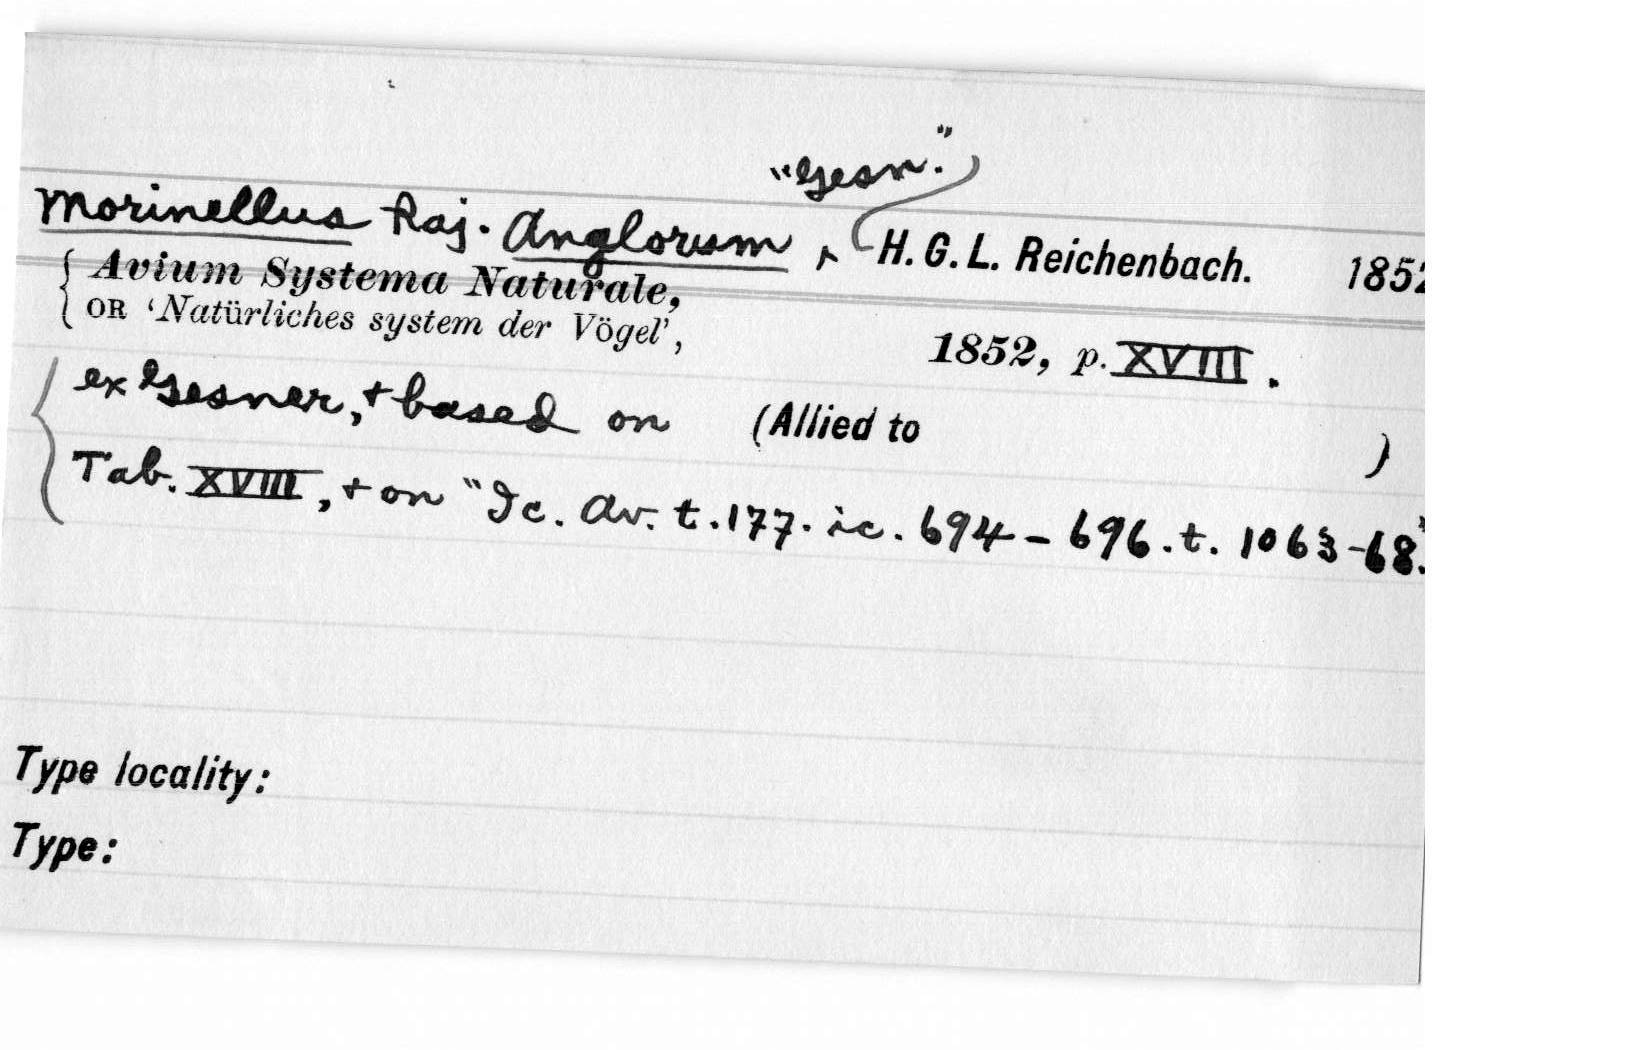 "Gesn."
Morinellus Raj. Anglorum, H. G. L. Reichenbach. 1852
Avium Systema Naturale,
OR 'Natürliches system der Vögel',
1852, p. XVIII.
ex Gesner, + based on (Allied to )
Tab. XVIII, + on "Ic. Av. t. 177. ic. 694 - 696. t. 1063-68."
Type locality:
Type: